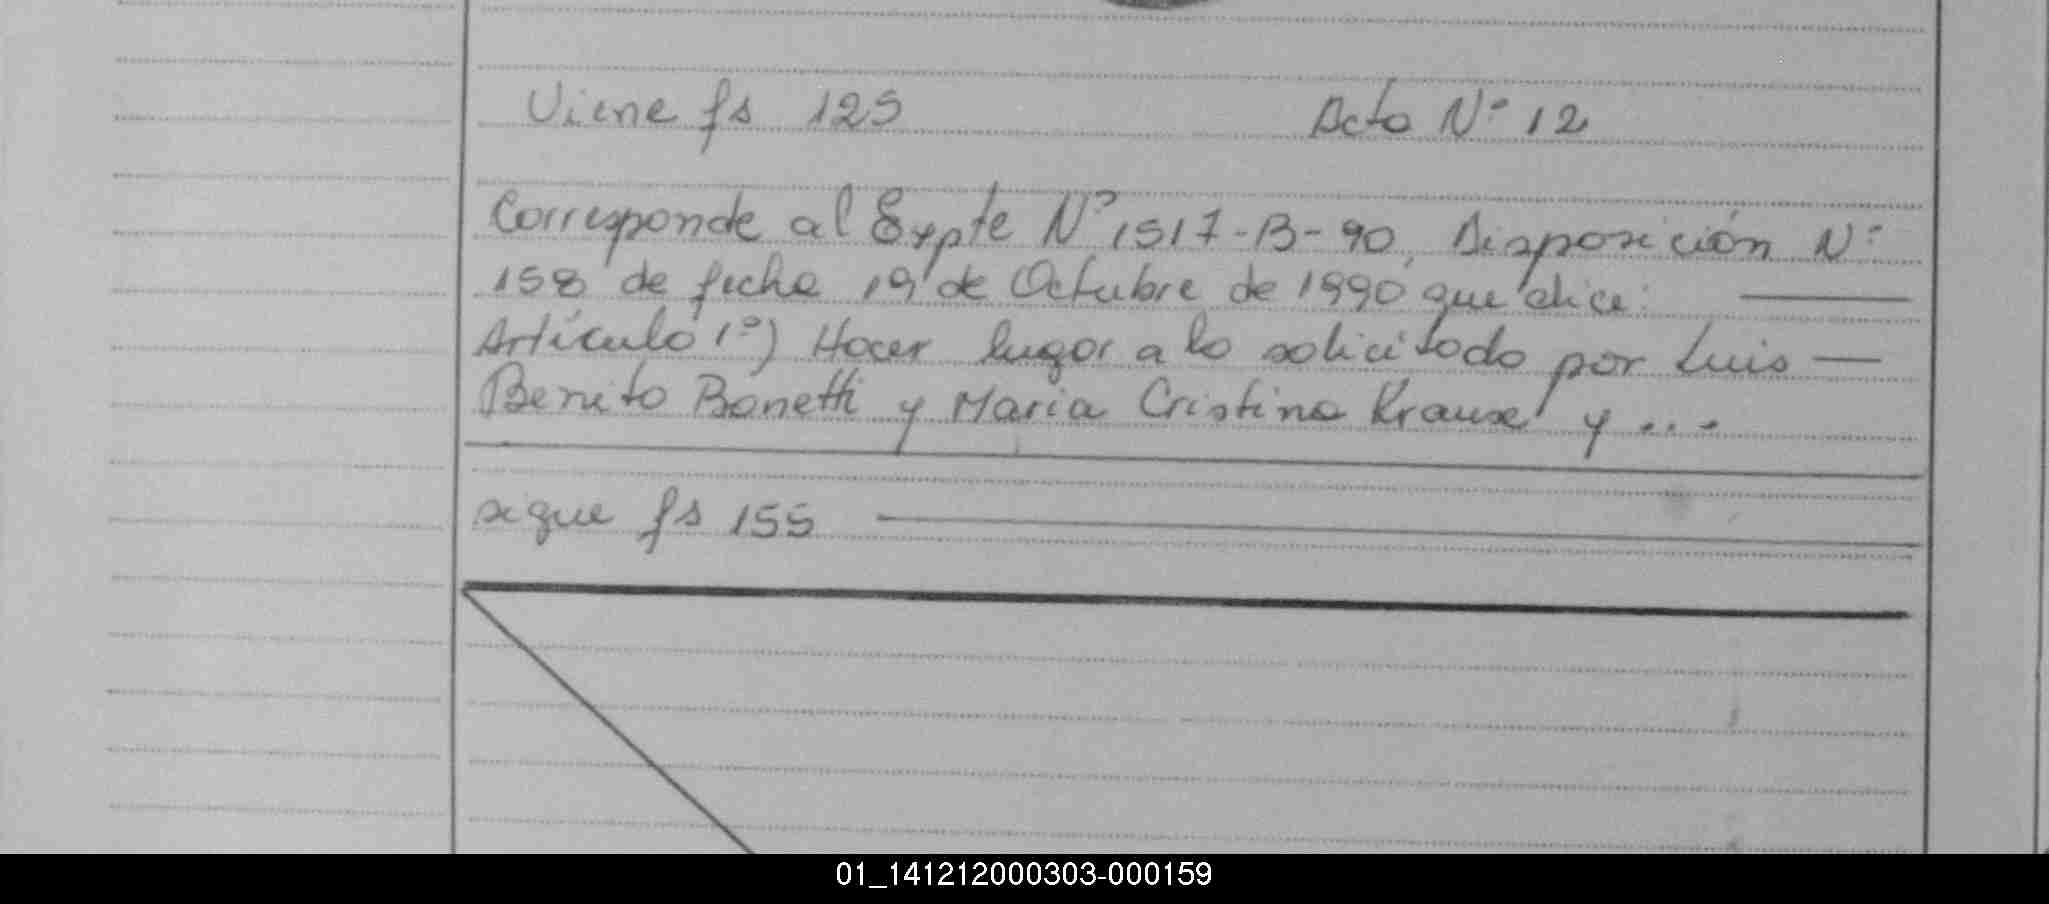 Viene fs 125 Acta Nº 12
Corresponde al Expte Nº 1517-B-90, Disposición Nº
158 de fecha 19 de Octubre de 1990 que dice:
Artículo 1º) Hacer lugar a lo solicitado por Luis —
Benito Bonetti y Maria Cristina Krause y ...
sigue fs 155
01_141212000303-000159